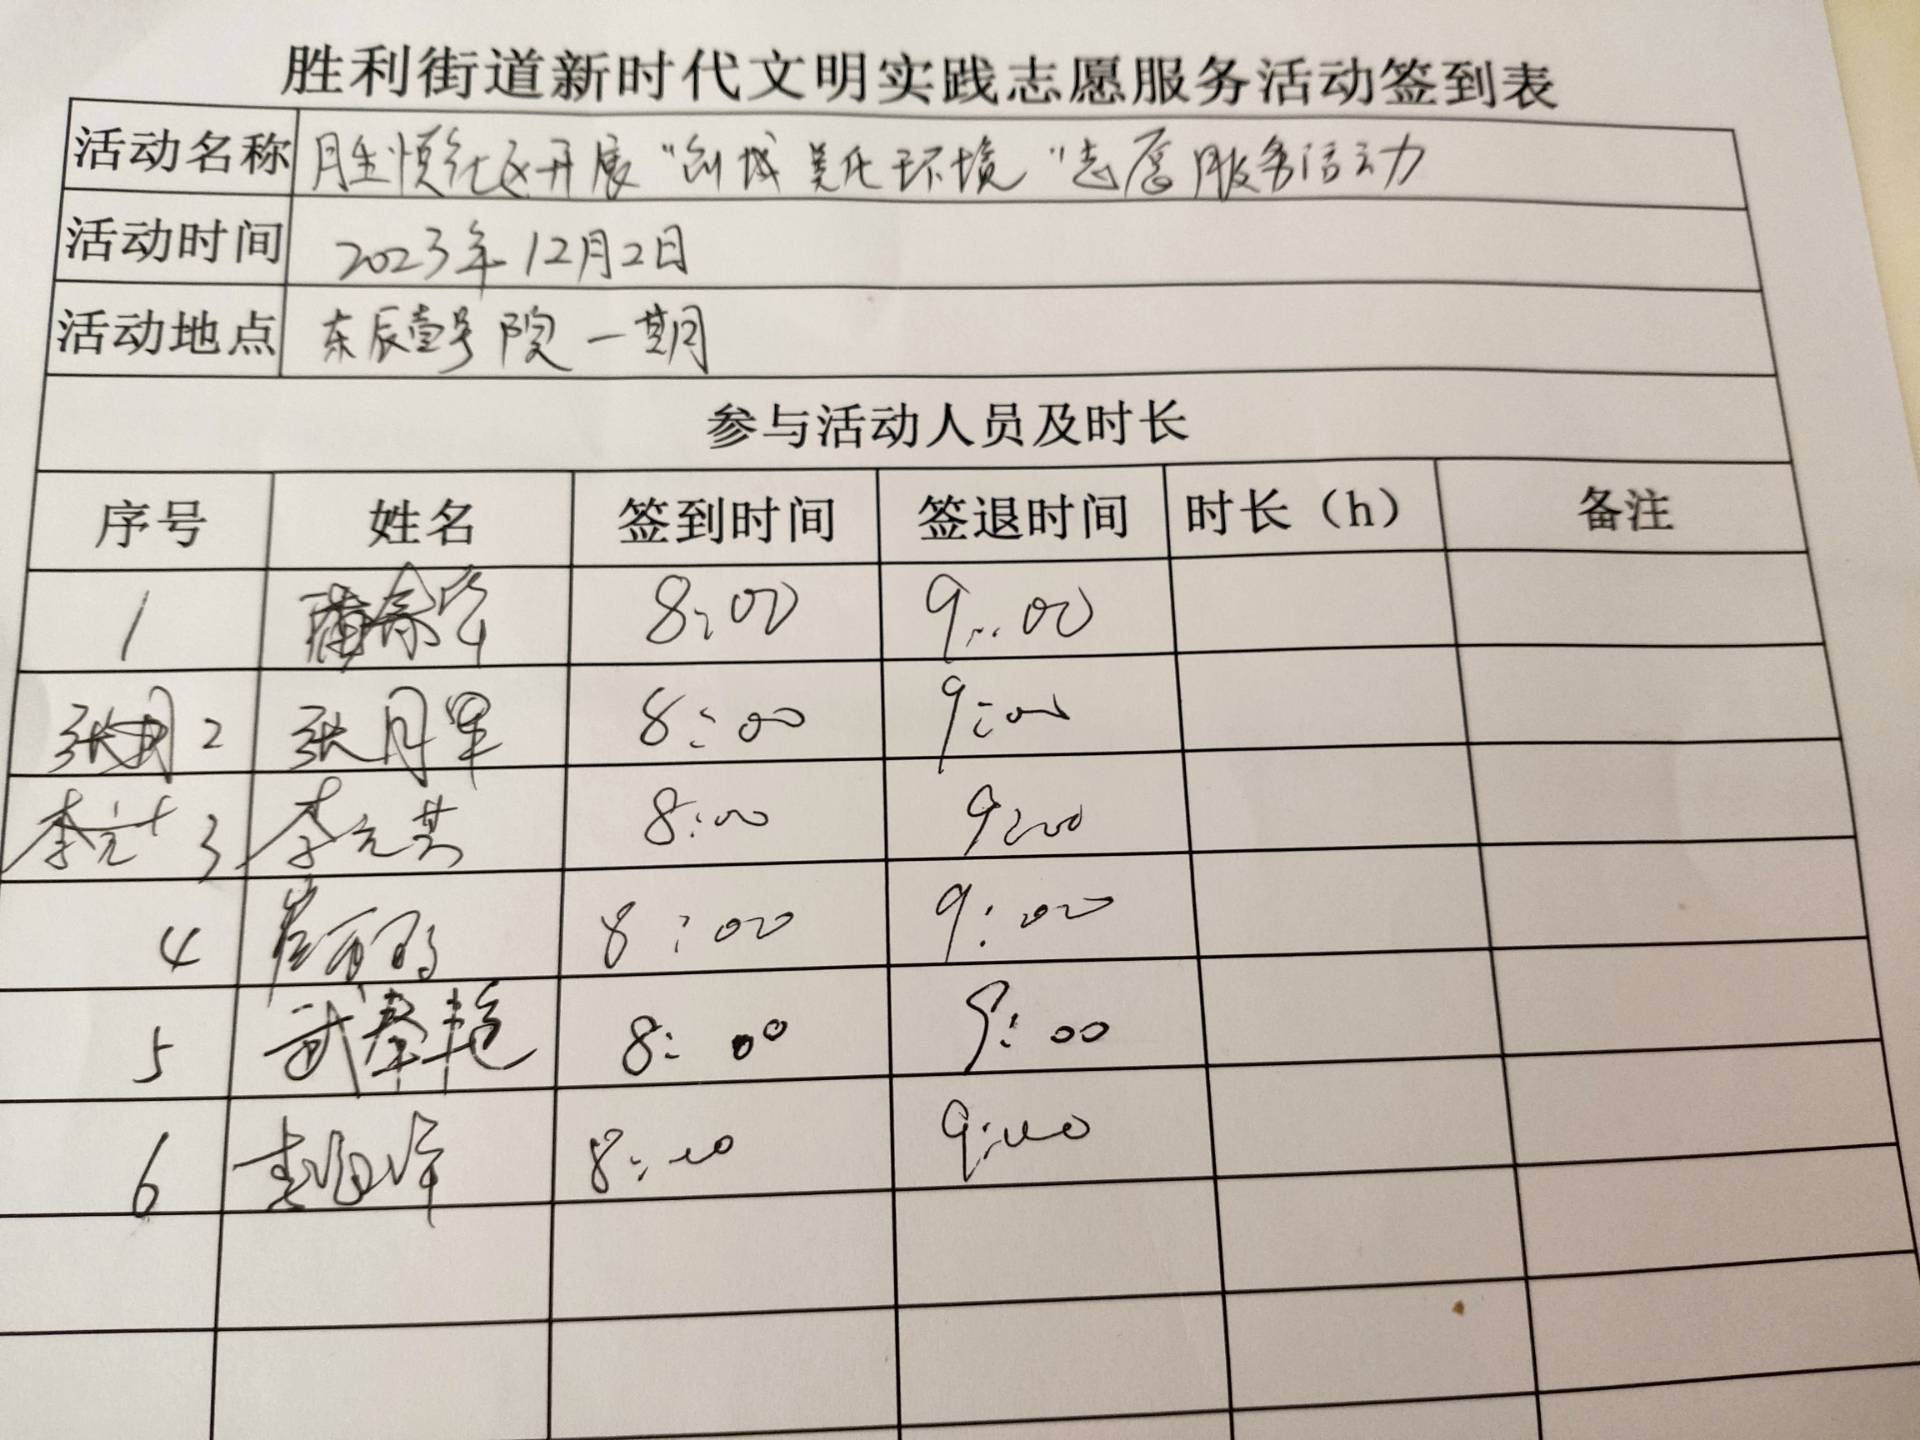 胜利街道新时代文明实践志愿服务活动签到表
活动名称 胜恒社区开展"创城 美化环境"志愿服务活动
活动时间 2023年12月2日
活动地点 东辰壹号院一期
参与活动人员及时长
序号 姓名 签到时间 签退时间 时长（h） 备注
1 8:00 9:00
2 张月星 8:00 9:00
3 李元其 8:00 9:00
4 8:00 9:00
5 武春艳 8:00 9:00
6 8:00 9:00